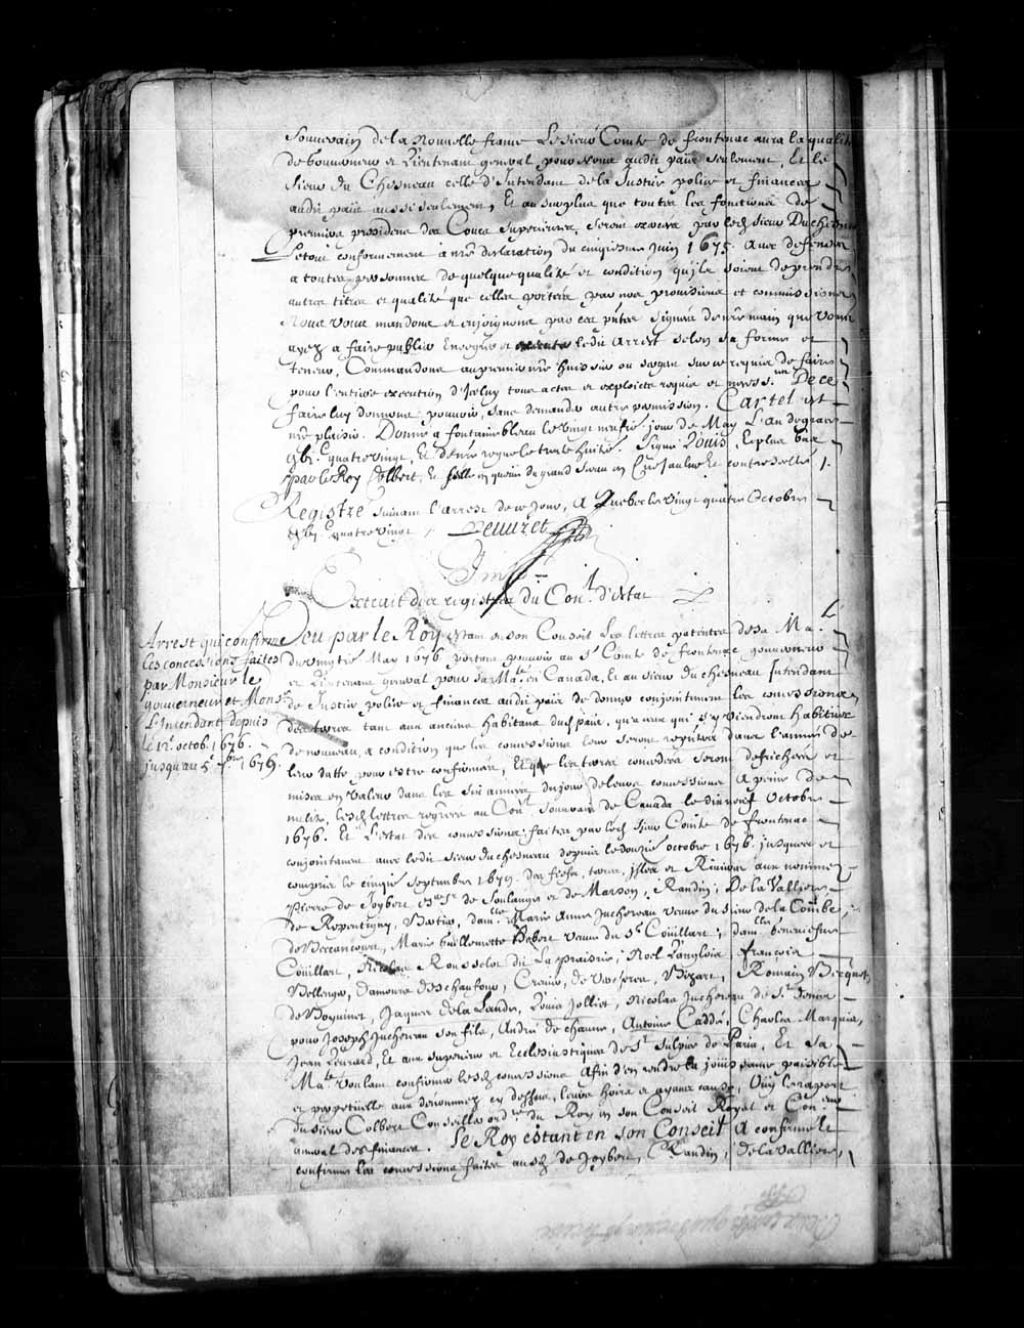 Souverain de la Nouvelle france Le sieur Comte de frontenac aura la qualité
de Gouverneur et Lieutenant general pour Nous audit païs seulement, Et le
sieur du Chesneau celle d'Intendant de la Justice police et finances
audit païs aussi seulement, Et au surplus que toutes les fonctions de
premiers presidens des Cours superieures, seront par led. sieur Duchesneau
conformement a nre declaration du cinquiesme Juin 1675. Avec defenses
a toutes personnes de quelque qualité et condition qu'ils soient de prendre
autres titres et qualité que celles portées par nos provisions et commissions
Nous vous mandons et enjoignons par ces pntes signées de nre main que vous
ayez a faire publier Enregrer et ledit Arrest selon sa forme et
teneur, Commandons au premier nre huissier ou sergent sur ce requis de faire
pour l'entiere execution d'Iceluy tous actes et exploicts requis et necess.res De ce
faire luy donnons pouvoir, sans demander autre permission. Car tel est
nre plaisir. Donné a fontainebleau le vingt neufie jour de May L'an de grace
gbi. quatre vingt, Et de nre regne le trente huitie. Signé Louis, Et plus bas
par le Roy Colbert, Et scellé en queüe du grand sceau en Cire Jaulne Et contrescellé /.
Registré suivant l'arrest de ce jour, A Quebec le vingt quatre Octobre
gbi quatre vingt / Peuuret
Extrait des registres du Con.l d'Estat
Arrest qui confirme
les concessions faites
par Monsieur le
gouverneur et Mons.r
L'Intendant depuis
le 12.e octob. 1676.
jusqu'au 5.e 7.bre 1679.
Veu par le Roy estant en son Conseil Les lettres patentes de sa Ma.té
du vingtie May 1676 portant pouvoir au S.r Comte de frontenac gouverneur
et Lieutenant general pour sa Ma.té en Canada, Et au sieur du chesneau Intendant
de Justice police et finances audit païs de donner conjointement les concessions
des terres tant aux anciens habitans dud. païs, qu'a ceux qui s'y viendront habituer
de nouveau, a condition que les concessions leur seront dans l'année de
leur datte pour estre confirmées, Et que les terres concedées seront defrichées et
mises en valeur dans les six années du jour de leurs concessions A peine de
nullité, lesd. lettres regrées au Con.l Souverain de Canada le dixneuf Octobre
1676. Et L'estat des concessions faites par led. sieur Comte de frontenac
conjointement avec ledit sieur duchesneau depuis le douzie octobre 1676. jusques et
compris le cinquie septembre 1679. des fiefs, terres, isles et Rivieres aux nommez
Pierre de Joybert S.r de Soulanges et de Marson, Randin, De la Valliere,
de Repentigny, Berthier, dam.lle Marie Anne Juchereau veuve du sieur de la Combe,
de Beccancourt, Marie Guillemette Hebert veuve du S.r Couillart, dam.lle Genevieve
Couillart, Nicolas Rousselot dit La prairie, Noel Langlois, françois
Bellenger, Damours Deschaufour, Crevier, de Vercheres, Bizart, Romain Becquet,
de Boyvinet, Jaques De la Lande, Louis Jolliet, Nicolas Juchereau de S.t Denis
pour Joseph Juchereau son fils, André de chaune, Antoine Caddé, Charles Marquis,
Jean Levrard, Et aux superieurs et Ecclesiastiques de S.t Sulpice de Paris, Et sa
Ma.té voulant confirmer lesd. concessions Afin d'en rendre la jouissance paisible
et perpetuelle aux denommez cy dessus, leurs hoirs et ayans cause, Ouy le raport
du sieur Colbert Conseiller ord.re du Roy en son Conseil Royal et Con.eur
general des finances. Le Roy estant en son Conseil A confirmé Et
confirme les concessions faites ausd. de Joybert, Randin, De la Valliere,